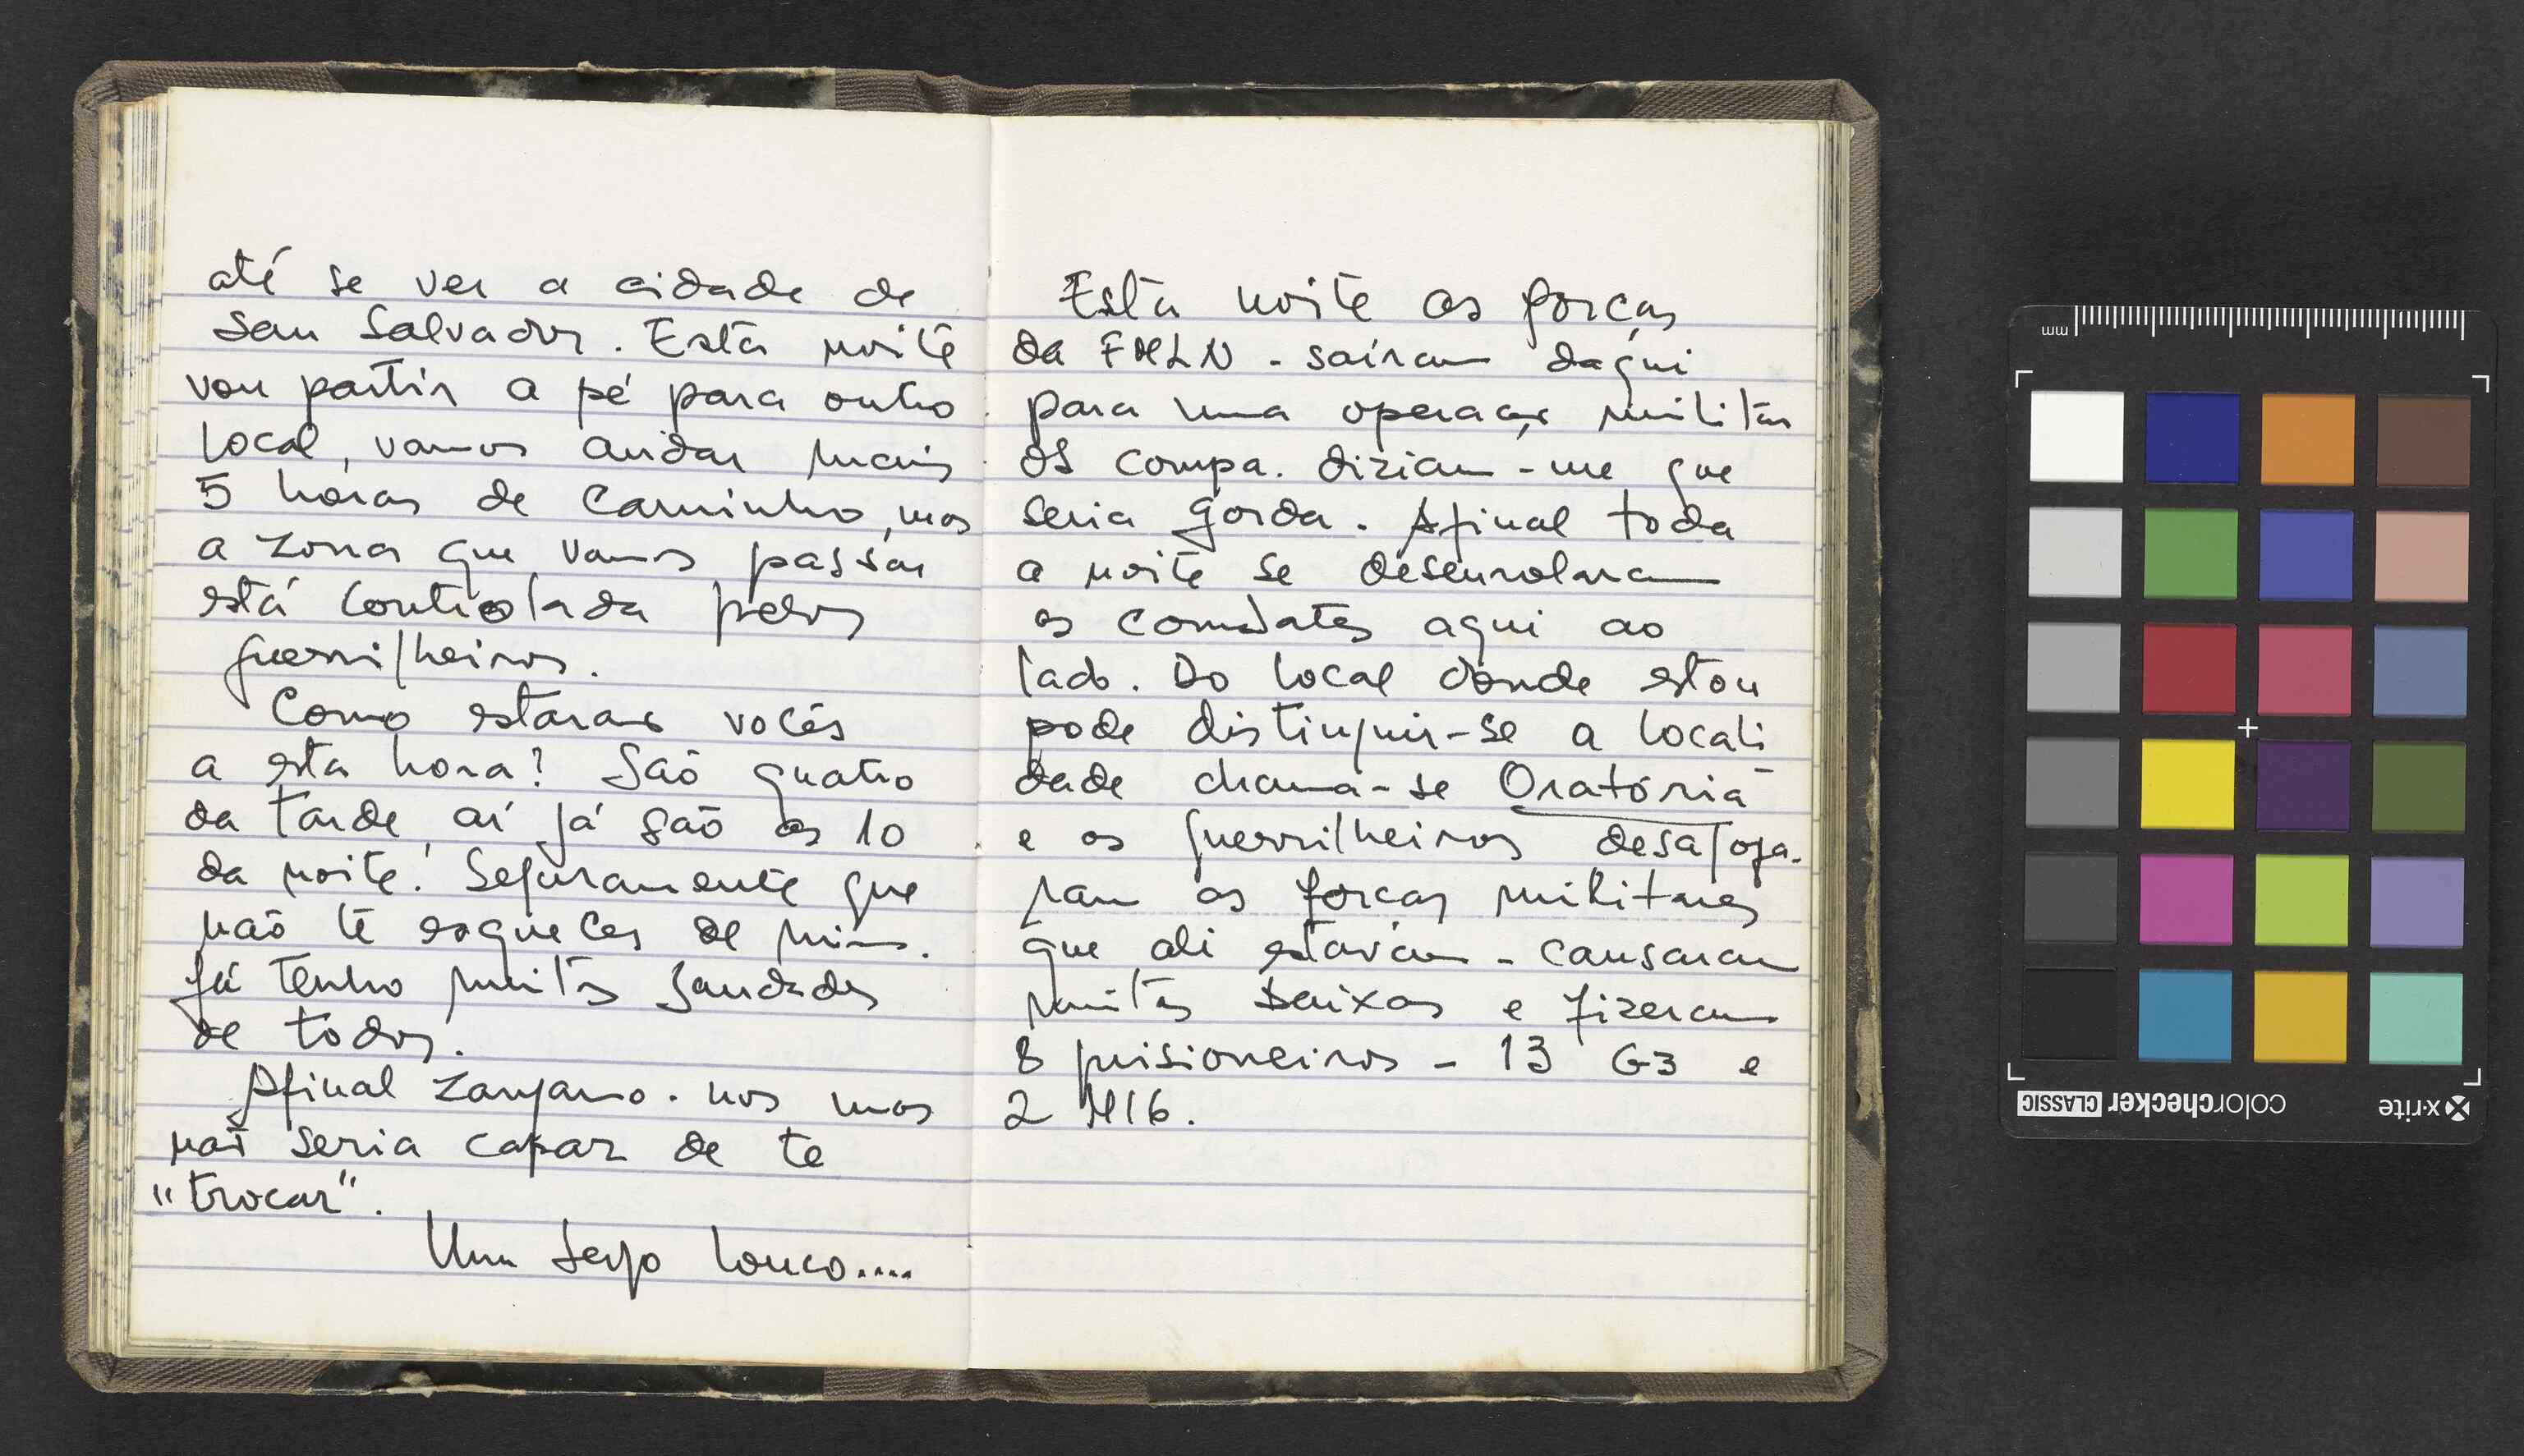 até se ver a cidade de
San Salvador. Esta noite
vou partir a pé para outro
local, vamos andar mais
5 horas de caminho, mas
a zona que vamos passar
está controlada pelos
guerrilheiros.
Como estarão vocês
a esta hora? São quatro
da tarde, aí já são as 10
da noite! Seguramente que
não te esqueces de mim.
Já tenho muitas saudades
de todos.
Afinal zangamo-nos mas
não seria capaz de te
"trocar".
Um beijo louco....
Esta noite as forças
da FMLN - saíram daqui
para uma operação militar
os compa. diziam-me que
seria gorda. Afinal toda
a noite se desenrolaram
os combates aqui ao
lado. Do local donde estou
pode distinguir-se a locali
dade chama-se Oratória
e os guerrilheiros desaloja-
ram as forças militares
que ali estavam - causaram
muitas baixas e fizeram
8 prisioneiros - 13 G3 e
2 M16.
mm
x·rite
colorchecker CLASSIC